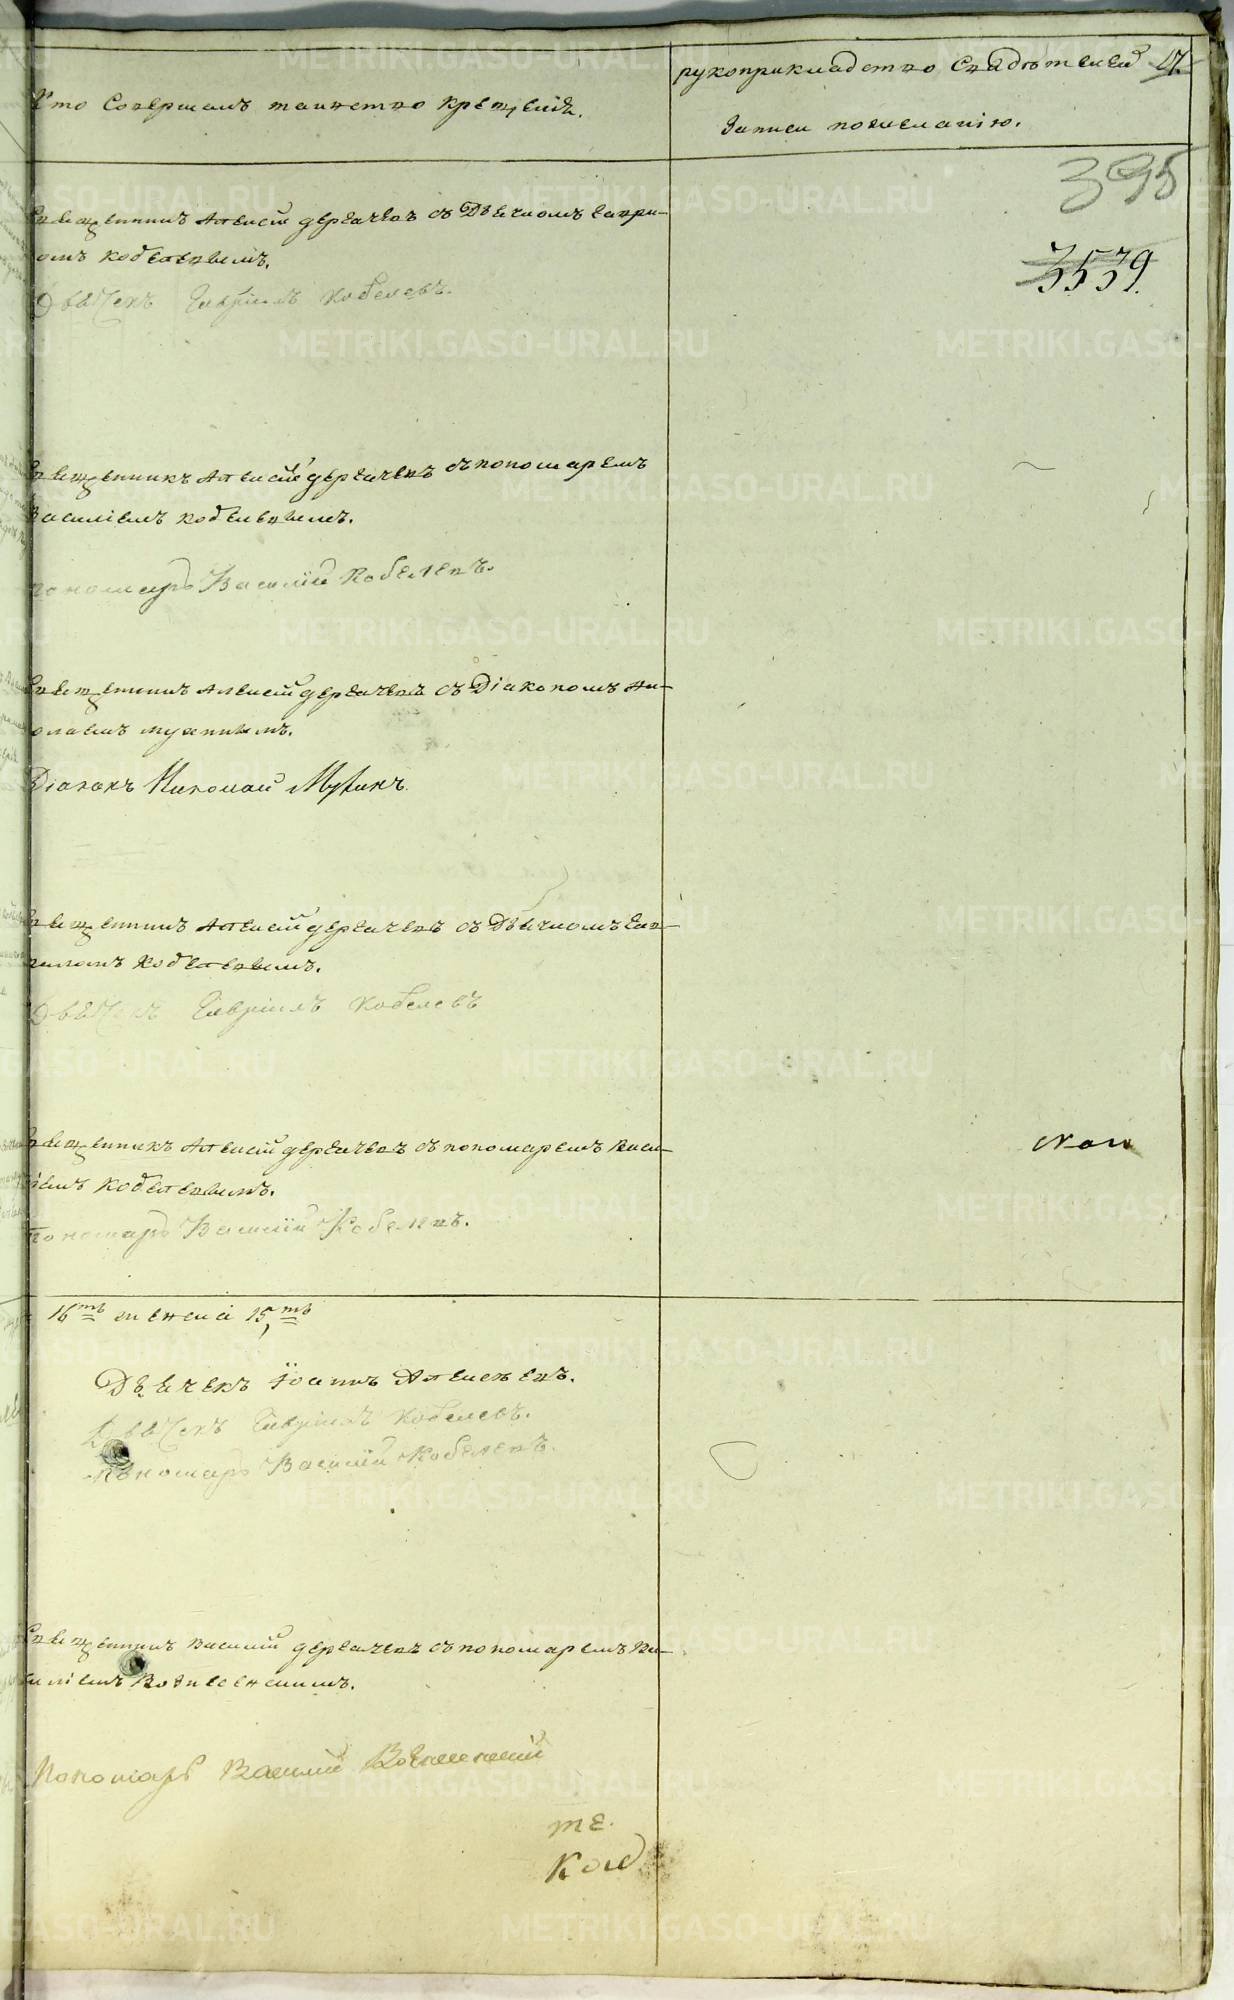 Кто Совершалъ таинство крещенія.
рукоприкладство Свидѣтелей
записи пожеланію.
17.
395
3539.
Священникъ Алексій дерячевъ съ Дьячкомъ Гаври-
ломъ кобелевымъ.
Дьячекъ Гавріилъ Кобелевъ.
Священникъ Алексій дерячевъ съ пономаремъ
Василіемъ кобелевымъ.
Пономарь Василій Кобелевъ.
Священникъ Алексій дерячевъ съ Діакономъ Ни-
колаемъ мухинымъ.
Діаконъ Николай Мухинъ.
Священникъ Алексій дерячевъ съ Дьячкомъ Гав-
риломъ Кобелевымъ.
Дьячекъ Гавріилъ Кобелевъ
Священникъ Алексій дерячевъ съ пономаремъ Васи-
ліемъ кобелевымъ.
Пономарь Василій Кобелевъ.
16ть женска 15ть
Дьячекъ Іоаннъ Алексѣевъ.
Дьячекъ Гавріилъ Кобелевъ.
Пономарь Василій Кобелевъ.
Священникъ Василій дерячевъ съ пономаремъ Ва-
силіемъ Вознесенскимъ.
Пономарь Василій Вознесенскій
те.
METRIKI.GASO-URAL.RU